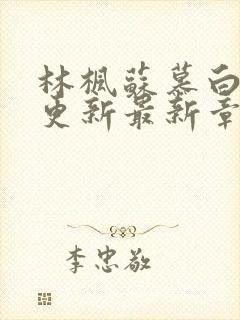 林楓蘇慕白
更新最新章
李忠敬